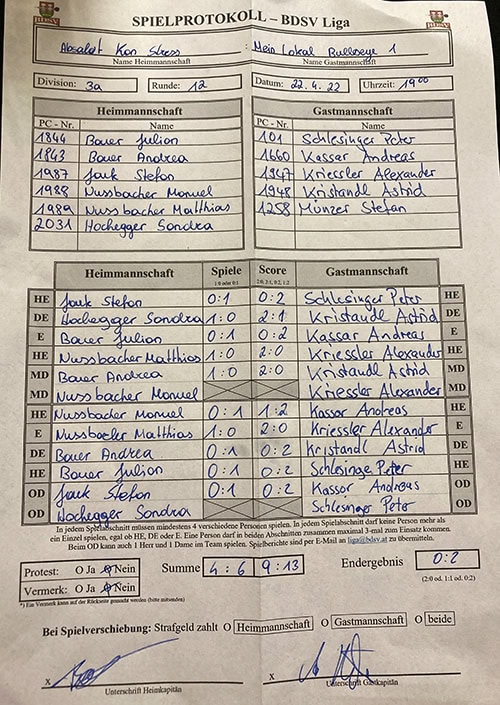 SPIELPROTOKOLL – BDSV Liga
Absolut Kan Stress : Mein Lokal Bullseye 1
Name Heimmannschaft Name Gastmannschaft
Division: 3a Runde: 12 Datum: 22.4.22 Uhrzeit: 19⁰⁰
Heimmannschaft Gastmannschaft
PC - Nr. Name PC - Nr. Name
1844 Bauer Julian 101 Schlesinger Peter
1843 Bauer Andrea 1660 Kassar Andreas
1987 Jauk Stefan 1947 Kriessler Alexander
1988 Nussbacher Manuel 1948 Kristandl Astrid
1989 Nussbacher Matthias 1258 Münzer Stefan
2031 Hochegger Sandra
Heimmannschaft Spiele Score Gastmannschaft
1:0 oder 0:1 2:0, 2:1, 0:2, 1:2
HE Jauk Stefan 0:1 0:2 Schlesinger Peter HE
DE Hochegger Sandra 1:0 2:1 Kristandl Astrid DE
E Bauer Julian 0:1 0:2 Kassar Andreas E
HE Nussbacher Matthias 1:0 2:0 Kriessler Alexander HE
MD Bauer Andrea 1:0 2:0 Kristandl Astrid MD
MD Nussbacher Manuel Kriessler Alexander MD
HE Nussbacher Manuel 0:1 1:2 Kassar Andreas HE
E Nussbacher Matthias 1:0 2:0 Kriessler Alexander E
DE Bauer Andrea 0:1 0:2 Kristandl Astrid DE
HE Bauer Julian 0:1 0:2 Schlesinge Peter HE
OD Jauk Stefan 0:1 0:2 Kassar Andreas OD
OD Hochegger Sandra Schlesinger Peter OD
In jedem Spielabschnitt müssen mindestens 4 verschiedene Personen spielen. In jedem Spielabschnitt darf keine Person mehr als
ein Einzel spielen, egal ob HE, DE oder E. Eine Person darf in beiden Abschnitten zusammen maximal 3-mal zum Einsatz kommen.
Beim OD kann auch 1 Herr und 1 Dame im Team spielen. Spielberichte sind per E-Mail an liga@bdsv.at zu übermitteln.
Protest: O Ja O Nein Summe 4 : 6 9 : 13 Endergebnis 0:2
Vermerk: O Ja O Nein (2:0 od. 1:1 od. 0:2)
*) Ein Vermerk kann auf der Rückseite gemacht werden (bitte mitsenden)
Bei Spielverschiebung: Strafgeld zahlt O Heimmannschaft O Gastmannschaft O beide
x x
Unterschrift Heimkapitän Unterschrift Gastkapitän